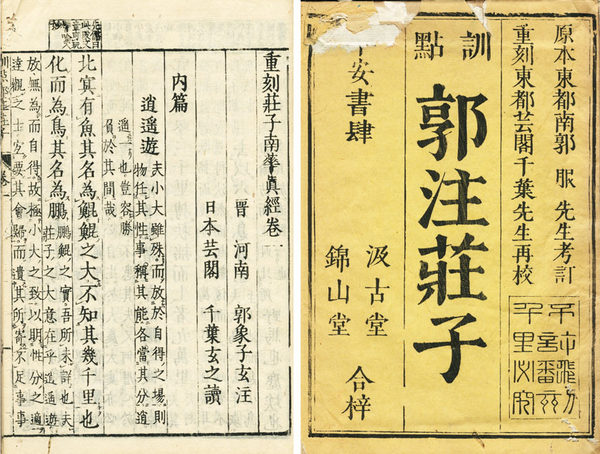 原本東都南郭 服 先生考訂
重刻東都芸閣千葉先生再校
訓點
郭注莊子
汲古堂
錦山堂 合梓
安書肆
重刻莊子南華眞經卷一
晉 河南 郭象子玄注
日本芸閣 千葉玄之讀
內篇
逍遙遊 夫小大雖殊而放於自得之場則
物任其性事稱其能各當其分逍
遙一也豈容勝
負於其間哉
北冥有魚其名為鯤鯤之大不知其幾千里也
化而為鳥其名為鵬 鵬鯤之實吾所未詳也夫
莊子之大意在乎逍遙遊
放無為而自得故極小大之致以明性分之適
達觀之士宜要其會歸而遺其所寄不足事事